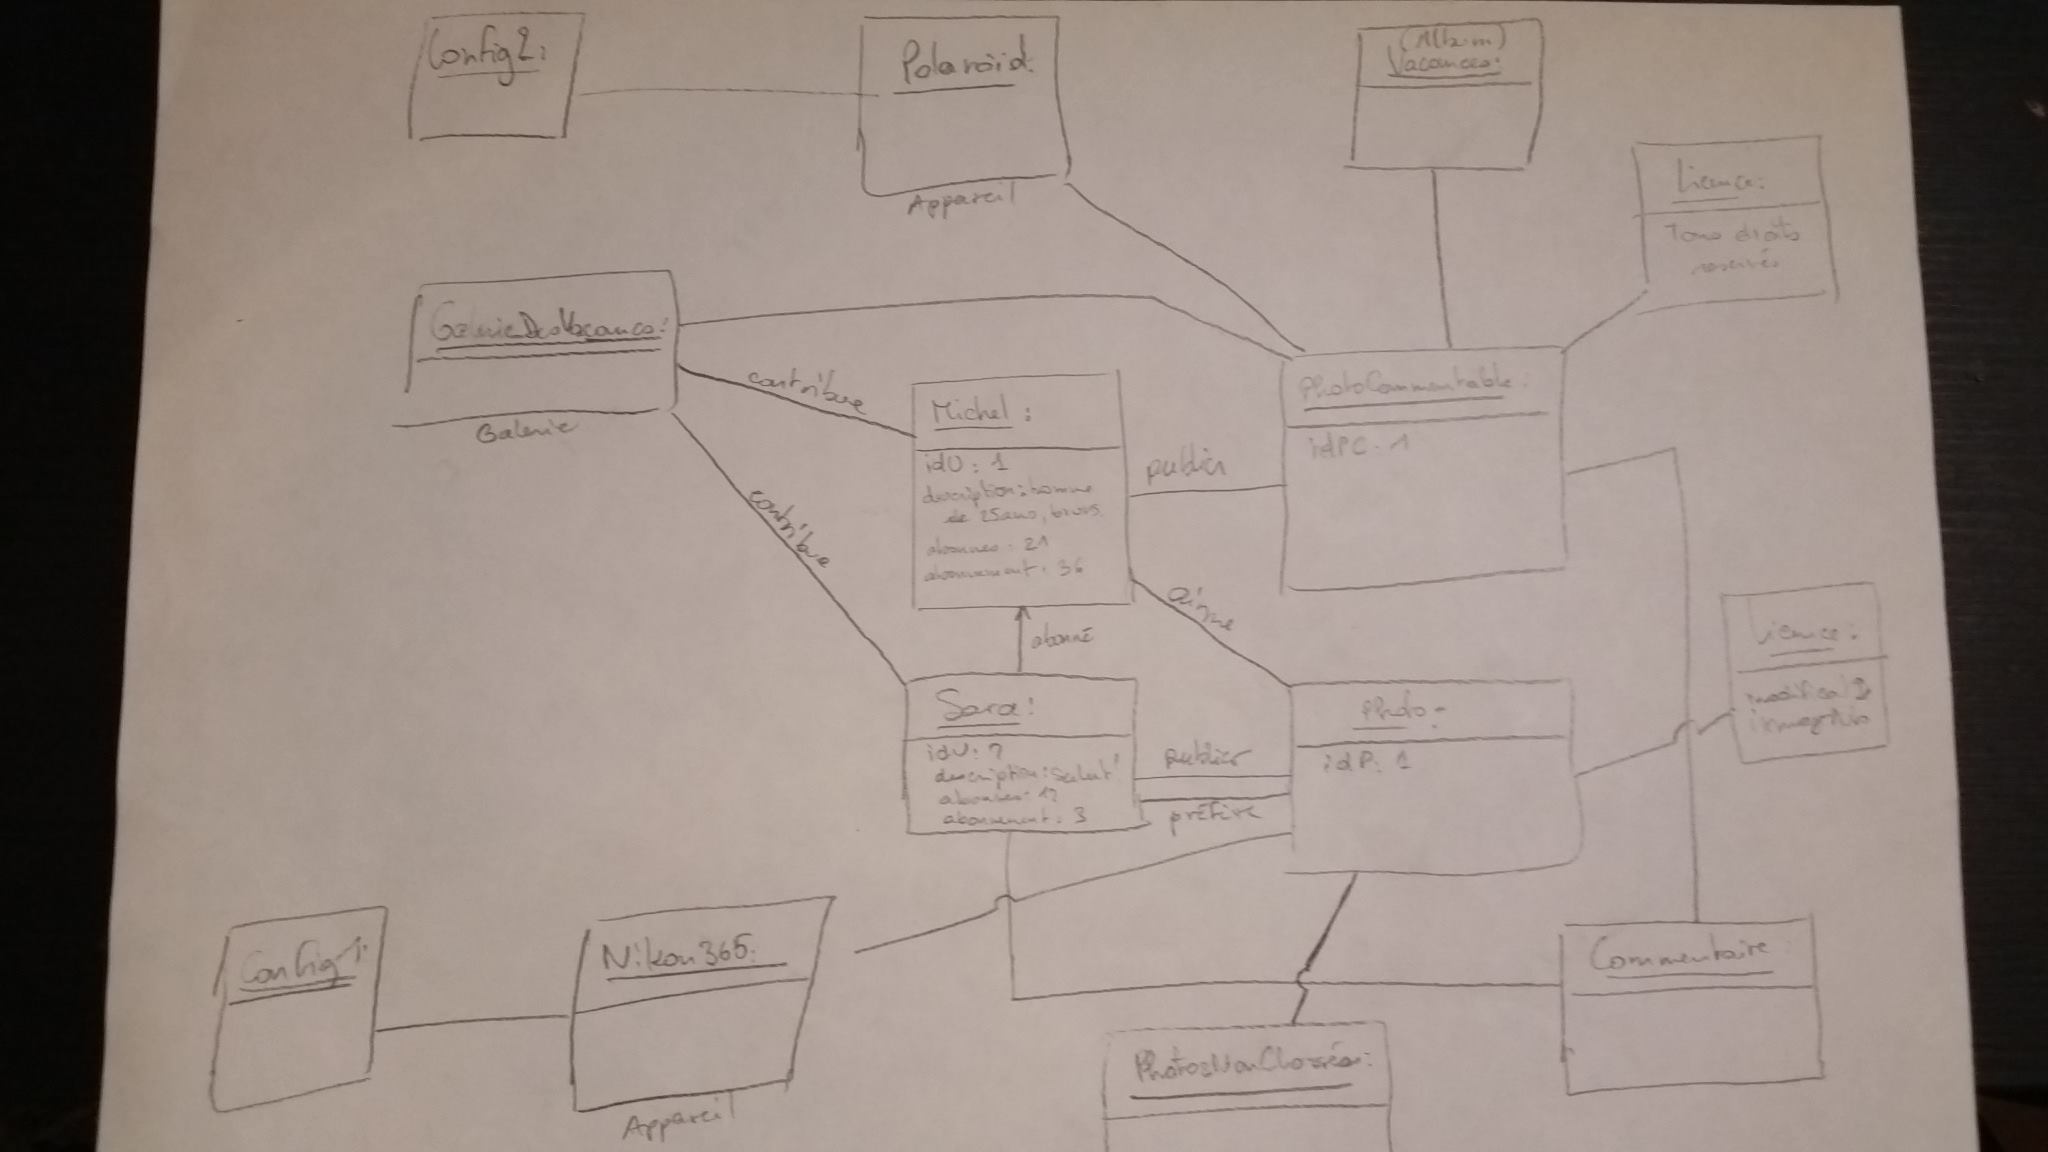 Config2:
Polaroïd:
Appareil
(Album)
Vacances:
Licence:
Tous droits
reservés
GalerieDesVacances:
Galerie
contribue
contribue
Michel :
idU : 1
description : homme
de 25ans, bruns.
abonnes : 21
abonnement : 36
publier
PhotoCommentable :
idPC : 1
aime
abonné
Sara :
idU : ?
description : Salut!
abonnes : 12
abonnement : 3
publier
préfère
Photo :
idP: 1
Licence :
Config1:
Nikon365:
Appareil
Commentaire :
PhotosNonClassées: